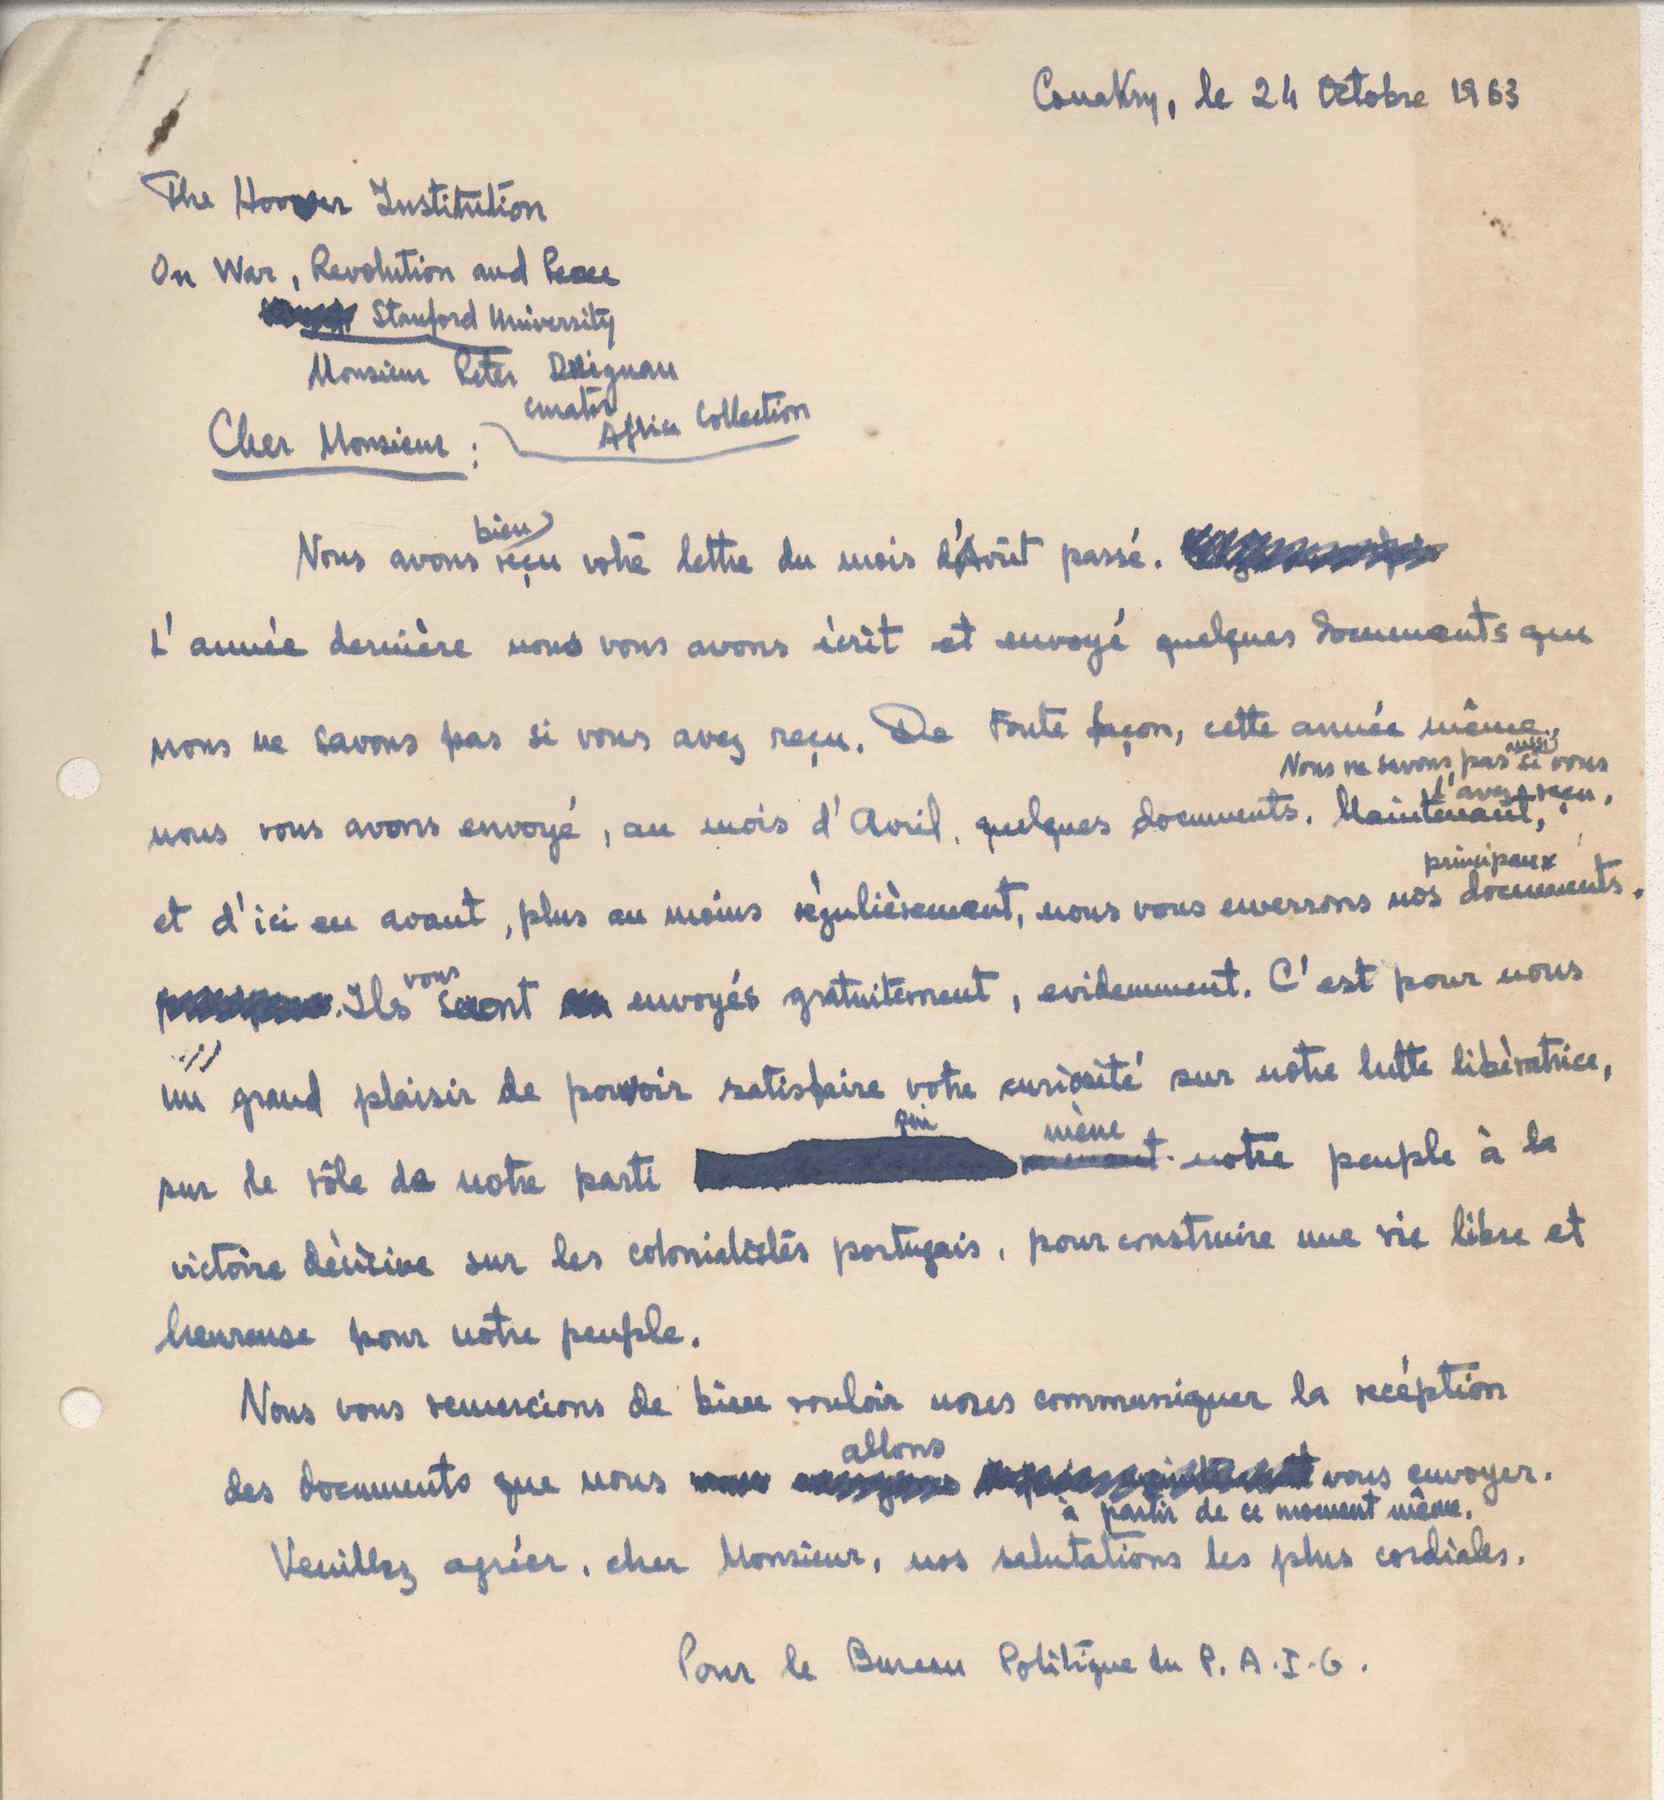 Conakry, le 24 Octobre 1963
The Hoover Institution
On War, Revolution and Peace
Stanford University
Monsieur Peter Duignan
curator
Africa Collection
Cher Monsieur :
bien
Nous avons reçu votre lettre du mois d'Août passé.
L'année dernière nous vous avons écrit et envoyé quelques documents que
nous ne savons pas si vous avez reçu. De toute façon, cette année même,
aussi
Nous ne savons pas si vous
l'avez reçu,
nous vous avons envoyé, au mois d'Avril, quelques documents. Maintenant,
principaux
et d'ici en avant, plus au moins régulièrement, nous vous enverrons nos documents.
vous
Ils seront envoyés gratuitement, evidemment. C'est pour nous
un grand plaisir de pouvoir satisfaire votre curiosité sur notre lutte libératrice,
qui mène
sur le rôle de notre parti menant notre peuple à la
victoire décisive sur les colonialistes portugais, pour construire une vie libre et
heureuse pour notre peuple.
Nous vous remercions de bien vouloir nous communiquer la recéption
allons
des documents que nous vous envoyer.
à partir de ce moment même.
Veuillez agréer, cher Monsieur, nos salutations les plus cordiales.
Pour le Bureau Politique du P.A.I.G.